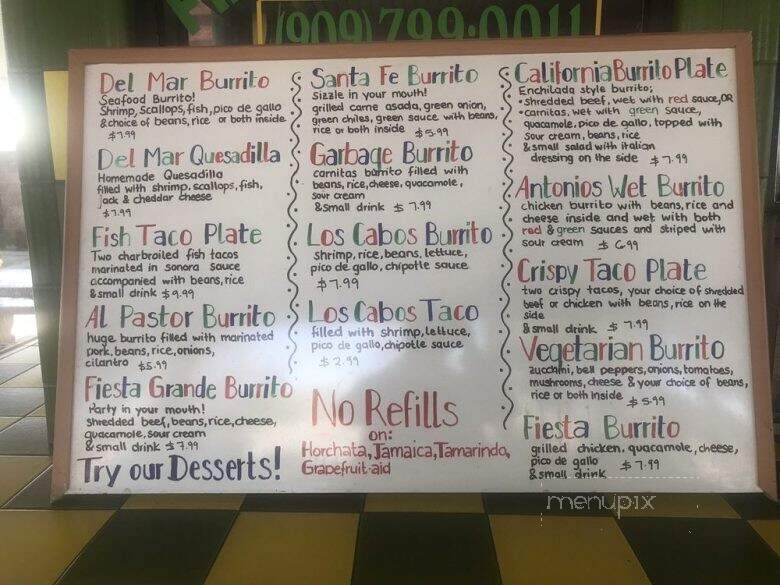 (909) 799-0011
Del Mar Burrito
Seafood Burrito!
Shrimp, Scallops, fish, pico de gallo
& choice of beans, rice or both inside
$7.99
Del Mar Quesadilla
Homemade Quesadilla
filled with shrimp, scallops, fish,
jack & cheddar cheese
$7.99
Fish Taco Plate
Two charbroiled fish tacos
marinated in sonora sauce
accompanied with beans, rice
& small drink $9.99
Al Pastor Burrito
huge burrito filled with marinated
pork, beans, rice, onions,
cilantro $5.99
Fiesta Grande Burrito
Party in your mouth!
shredded beef, beans, rice, cheese,
guacamole, sour cream
& small drink $7.99
Try our Desserts!
Santa Fe Burrito
Sizzle in your mouth!
grilled carne asada, green onion,
green chiles, green sauce with beans,
rice or both inside $5.99
Garbage Burrito
carnitas burrito filled with
beans, rice, cheese, guacamole,
sour cream
& small drink $7.99
Los Cabos Burrito
shrimp, rice, beans, lettuce,
pico de gallo, chipotle sauce
$7.99
Los Cabos Taco
filled with shrimp, lettuce,
pico de gallo, chipotle sauce
$2.99
No Refills
on:
Horchata, Jamaica, Tamarindo,
Grapefruit-aid
California Burrito Plate
Enchilada style burrito;
•shredded beef, wet with red sauce, OR
•carnitas, wet with green sauce,
guacamole, pico de gallo, topped with
sour cream, beans, rice
& small salad with italian
dressing on the side $7.99
Antonios Wet Burrito
chicken burrito with beans, rice and
cheese inside and wet with both
red & green sauces and striped with
sour cream $6.99
Crispy Taco Plate
two crispy tacos, your choice of shredded
beef or chicken with beans, rice on the
side
& small drink $7.99
Vegetarian Burrito
zucchini, bell peppers, onions, tomatoes,
mushrooms, cheese & your choice of beans,
rice or both inside $5.99
Fiesta Burrito
grilled chicken, guacamole, cheese,
pico de gallo $7.99
& small drink
menupix